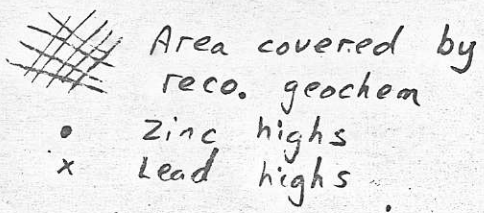 Area covered by
reco. geochem
• Zinc highs
x Lead highs